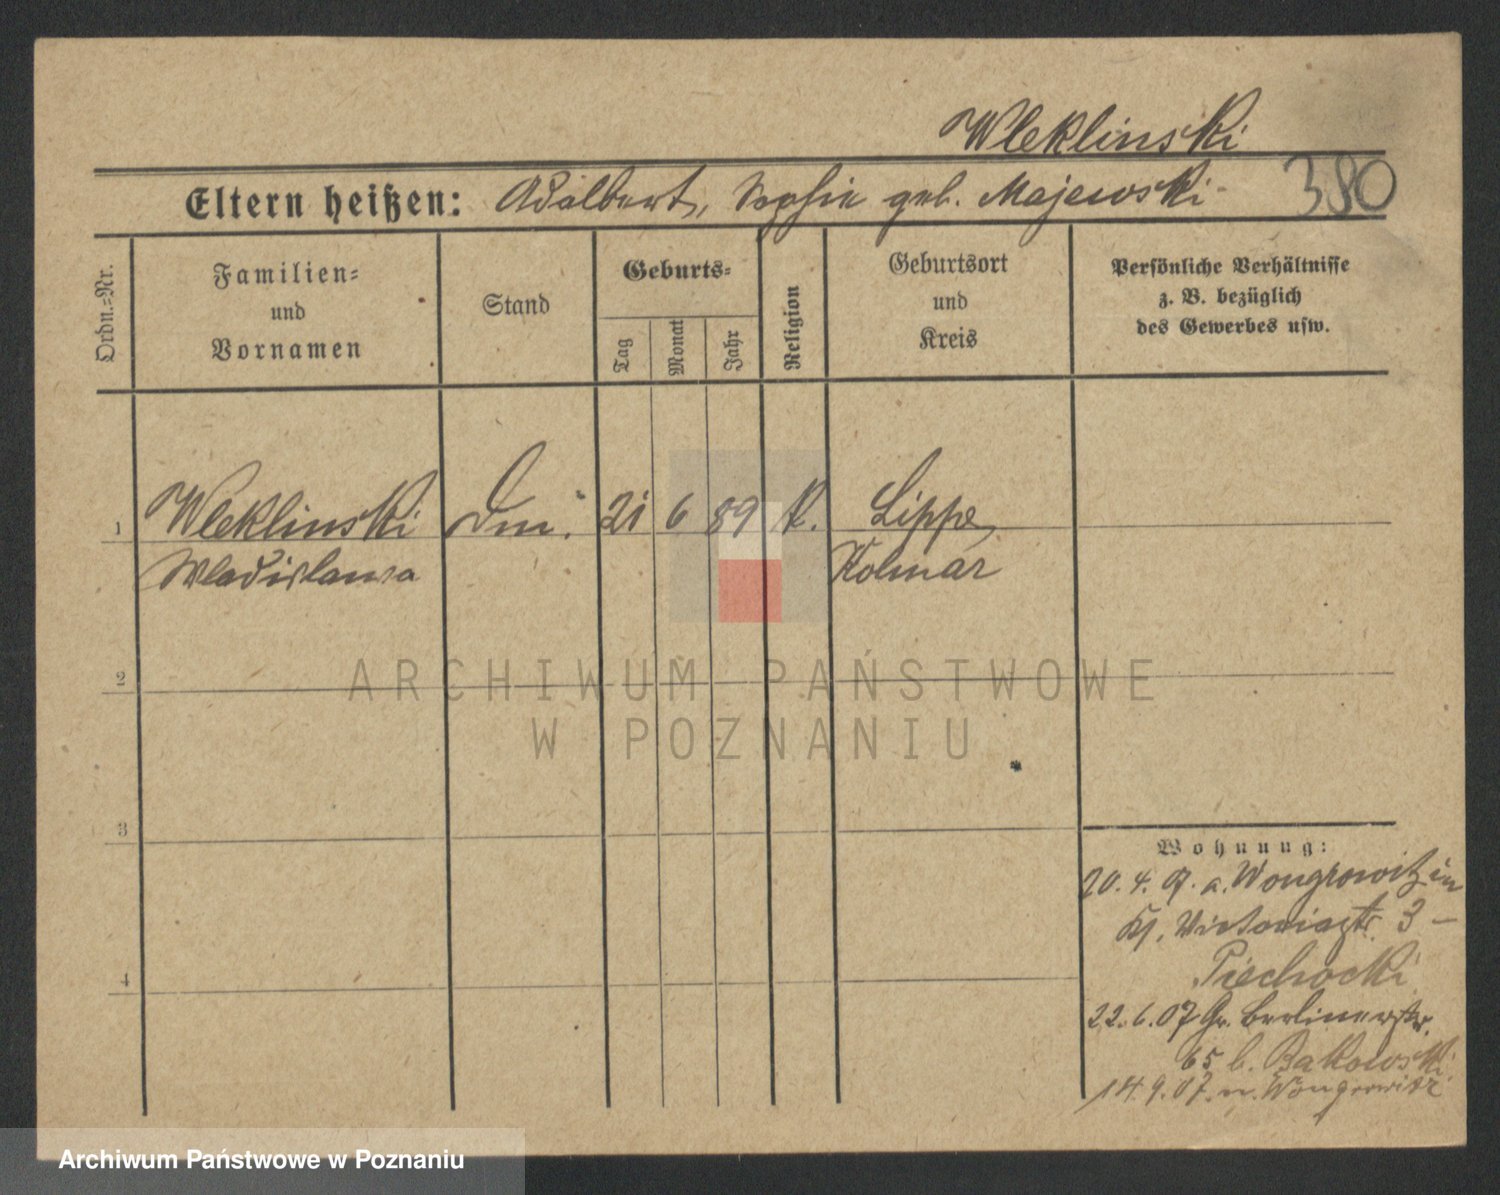 Wleklinski
Eltern heißen: Adalbert, Sophie geb. Majewski 380
Ordn.=Nr.
Familien=
und
Vornamen
Stand
Geburts=
Tag
Monat
Jahr
Religion
Geburtsort
und
Kreis
Persönliche Verhältnisse
z. B. bezüglich
des Gewerbes usw.
1 Wleklinski 21 6 89 K. Lippe
Wladislawa Kolmar
2
ARCHIWUM PAŃSTWOWE
W POZNANIU
3
4
Wohnung:
20. 4. 07. a. Wongrowitz in
Victoriastr. 3 –
Piechocki
22. 6. 07 Gr. Berlinerstr.
65 b. Bakowski
14. 9. 07. n. Wongrowitz
Archiwum Państwowe w Poznaniu